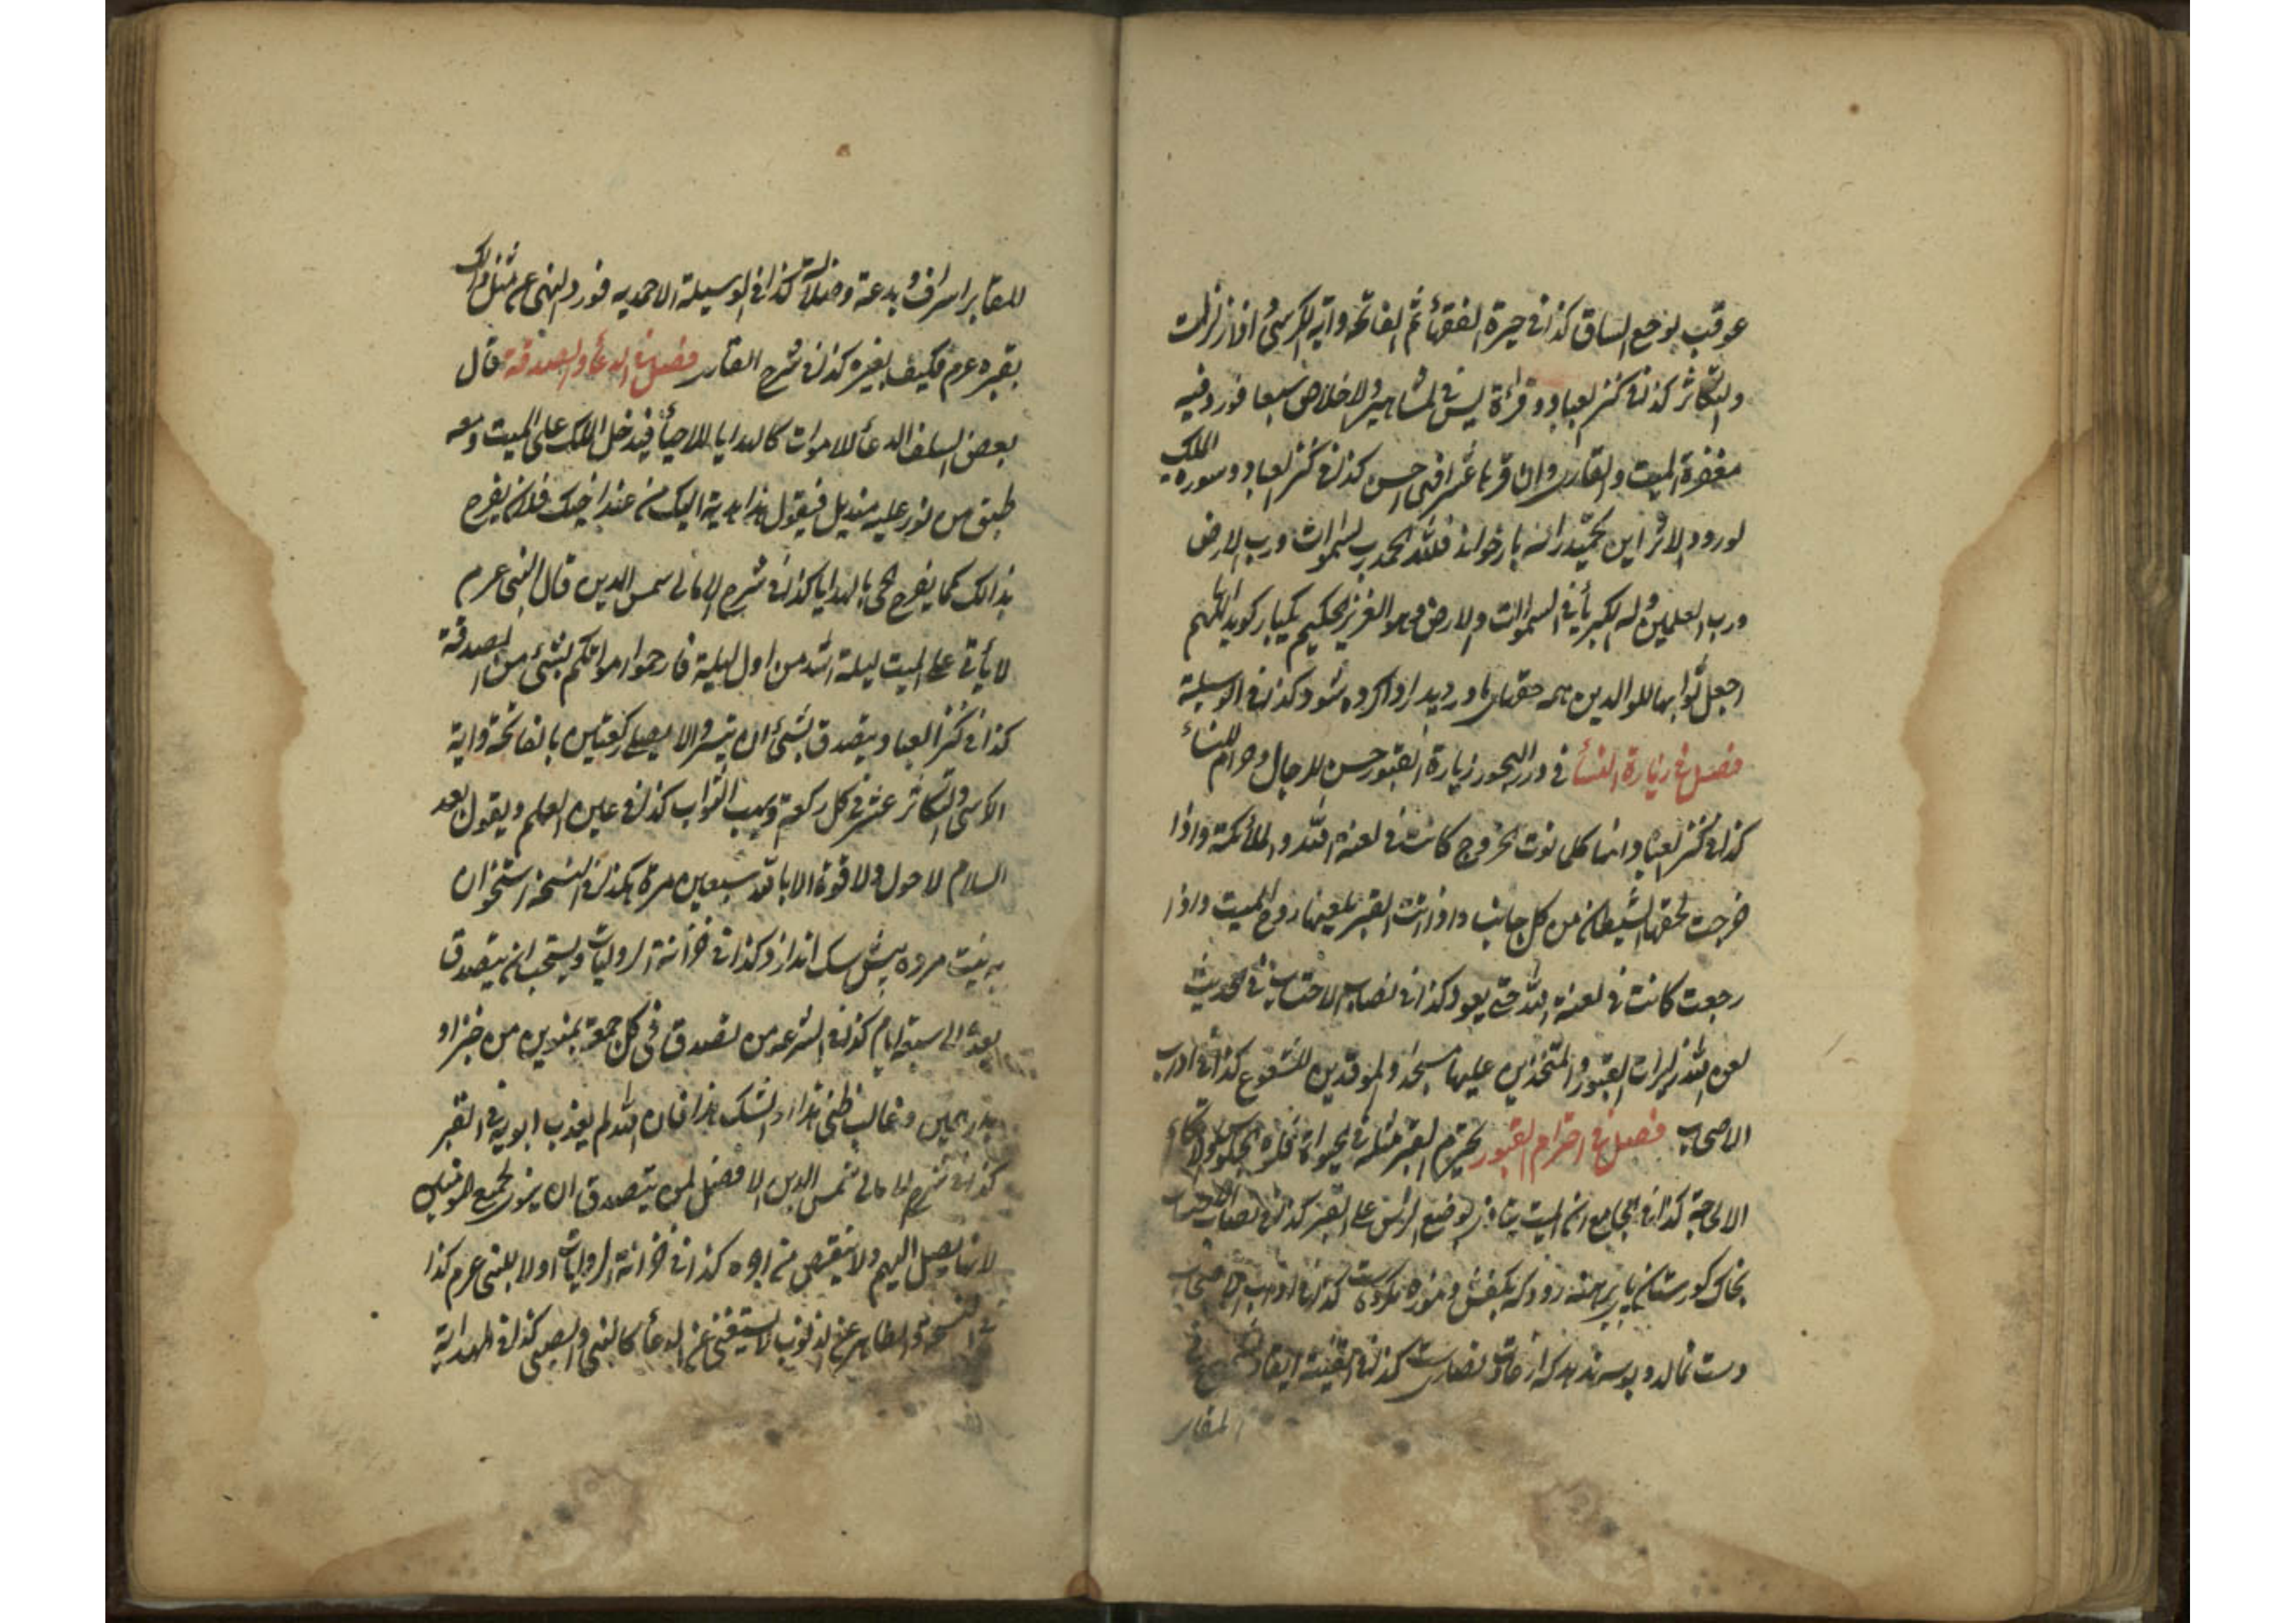 عوقب بوجع الساق كذا فى حيرة الفقهأ ثم الفاتحة واية الكرسى واذا زلزلت
والتكاثر كذا فى كنز العباد وقرأة يس فى المشاهير والاخلاص سبعا فورد فيه
مغفرة الميت والقارى وان قرأ عشرا فهى احسن كذا فى كنز العباد وسورة الملك
لورود الاثر اين تحميد را نه بار خواند فلله الحمد رب السموات ورب الارض
ورب العلمين وله الكبريأ فى السموات والارض وهو العزيز الحكيم يكبار كويد اللهم
اجعل ثوابها للوالدين همه حقهاى مادر و پدر ادا كرده شود كذا فى الوسيلة
فصل فى زيارة النسأ فى درر البحور زيارة القبور حسن للرجال وحرام للنساء
كذا فى كنز العباد انها كلما نوت الخروج كانت فى لعنة الله والملئكة واذا
خرجت لحقها الشيطان من كل جانب واذا اتت القبر يلعنها روح الميت واذا
رجعت كانت فى لعنة الله حتى يعود كذا فى نصاب الاحتساب فى الحديث
لعن الله زايرات القبور والمتخذين عليها مسجدا والموقدين للشموع كذا فى اداب
الاصحاب فصل فى احترام القبور يحترم القبر مثله فى الحيوة فلا
الا لحاجة كذا فى الجامع ان الميت يتأذى بوضع الرأس على القبر كذا فى نصاب الاحتساب
بخاك كورستان پاى برهنه رود كه بكفش وموزه مكروه است كذا فى اداب الاصحاب
دست نمالد و بوسه ندهد كه از عادات نصارى است كذا فى القنية ايقاد
المقابر
للمقابر اسراف وبدعة وضلالة كذا فى الوسيلة الاحمديه فورد النهى عن مثل ذلك
بقبره عرم فكيف بغيره كذا فى شرح القارى فصل فى الدعأ والصدقة قال
بعض السلف الدعأ للاموات كالهدايا للاحيأ فيدخل الملك على الميت ومعه
طبق من نور عليه منديل فيقول هذا هدية اليك من عند اخيك فلان يفرح
بذالك كما يفرح الحى بالهدايا كذا فى شرح الامالى شمس الدين قال النبى عرم
لا يأتى على الميت ليلة اشد من اول ليلة فارحموا امواتكم بشئ من الصدقة
كذا فى كنز العباد يتصدق بشئ ان تيسر والا يصلى ركعتين بالفاتحة واية
الكرسى والتكاثر عشر فى كل ركعة ويهب الثواب كذا فى عين العلم ويقول بعد
السلام لا حول ولا قوة الا بالله سبعين مرة هكذا فى النسخة استخوان
به نيت مرده پيش سك اندازد كذا فى خزانة الروايات ويستحب ان يتصدق
بعده الى سبعة ايام كذا فى الشرعة ومن تصدق فى كل جمعة بمنوين من خبز او
بدرهمين وغالب ظنى هذا والشك هذا فان الله لم يعذب ابويه فى القبر
كذا فى شرح الامالى شمس الدين الافضل لمن يتصدق ان ينوى لجميع المؤمنين
لانها يصل اليهم ولا ينقص من اجره كذا فى خزانة الروايات اولا للنبى عرم كذا
فى النسخة والطاهر عن الذنوب لا يستغنى عن الدعأ كالنبى والصبى كذا فى الهداية